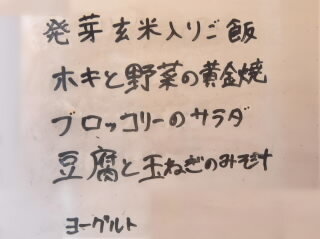 発芽玄米入りご飯
ホキと野菜の黄金焼
ブロッコリーのサラダ
豆腐と玉ねぎのみそ汁
ヨーグルト